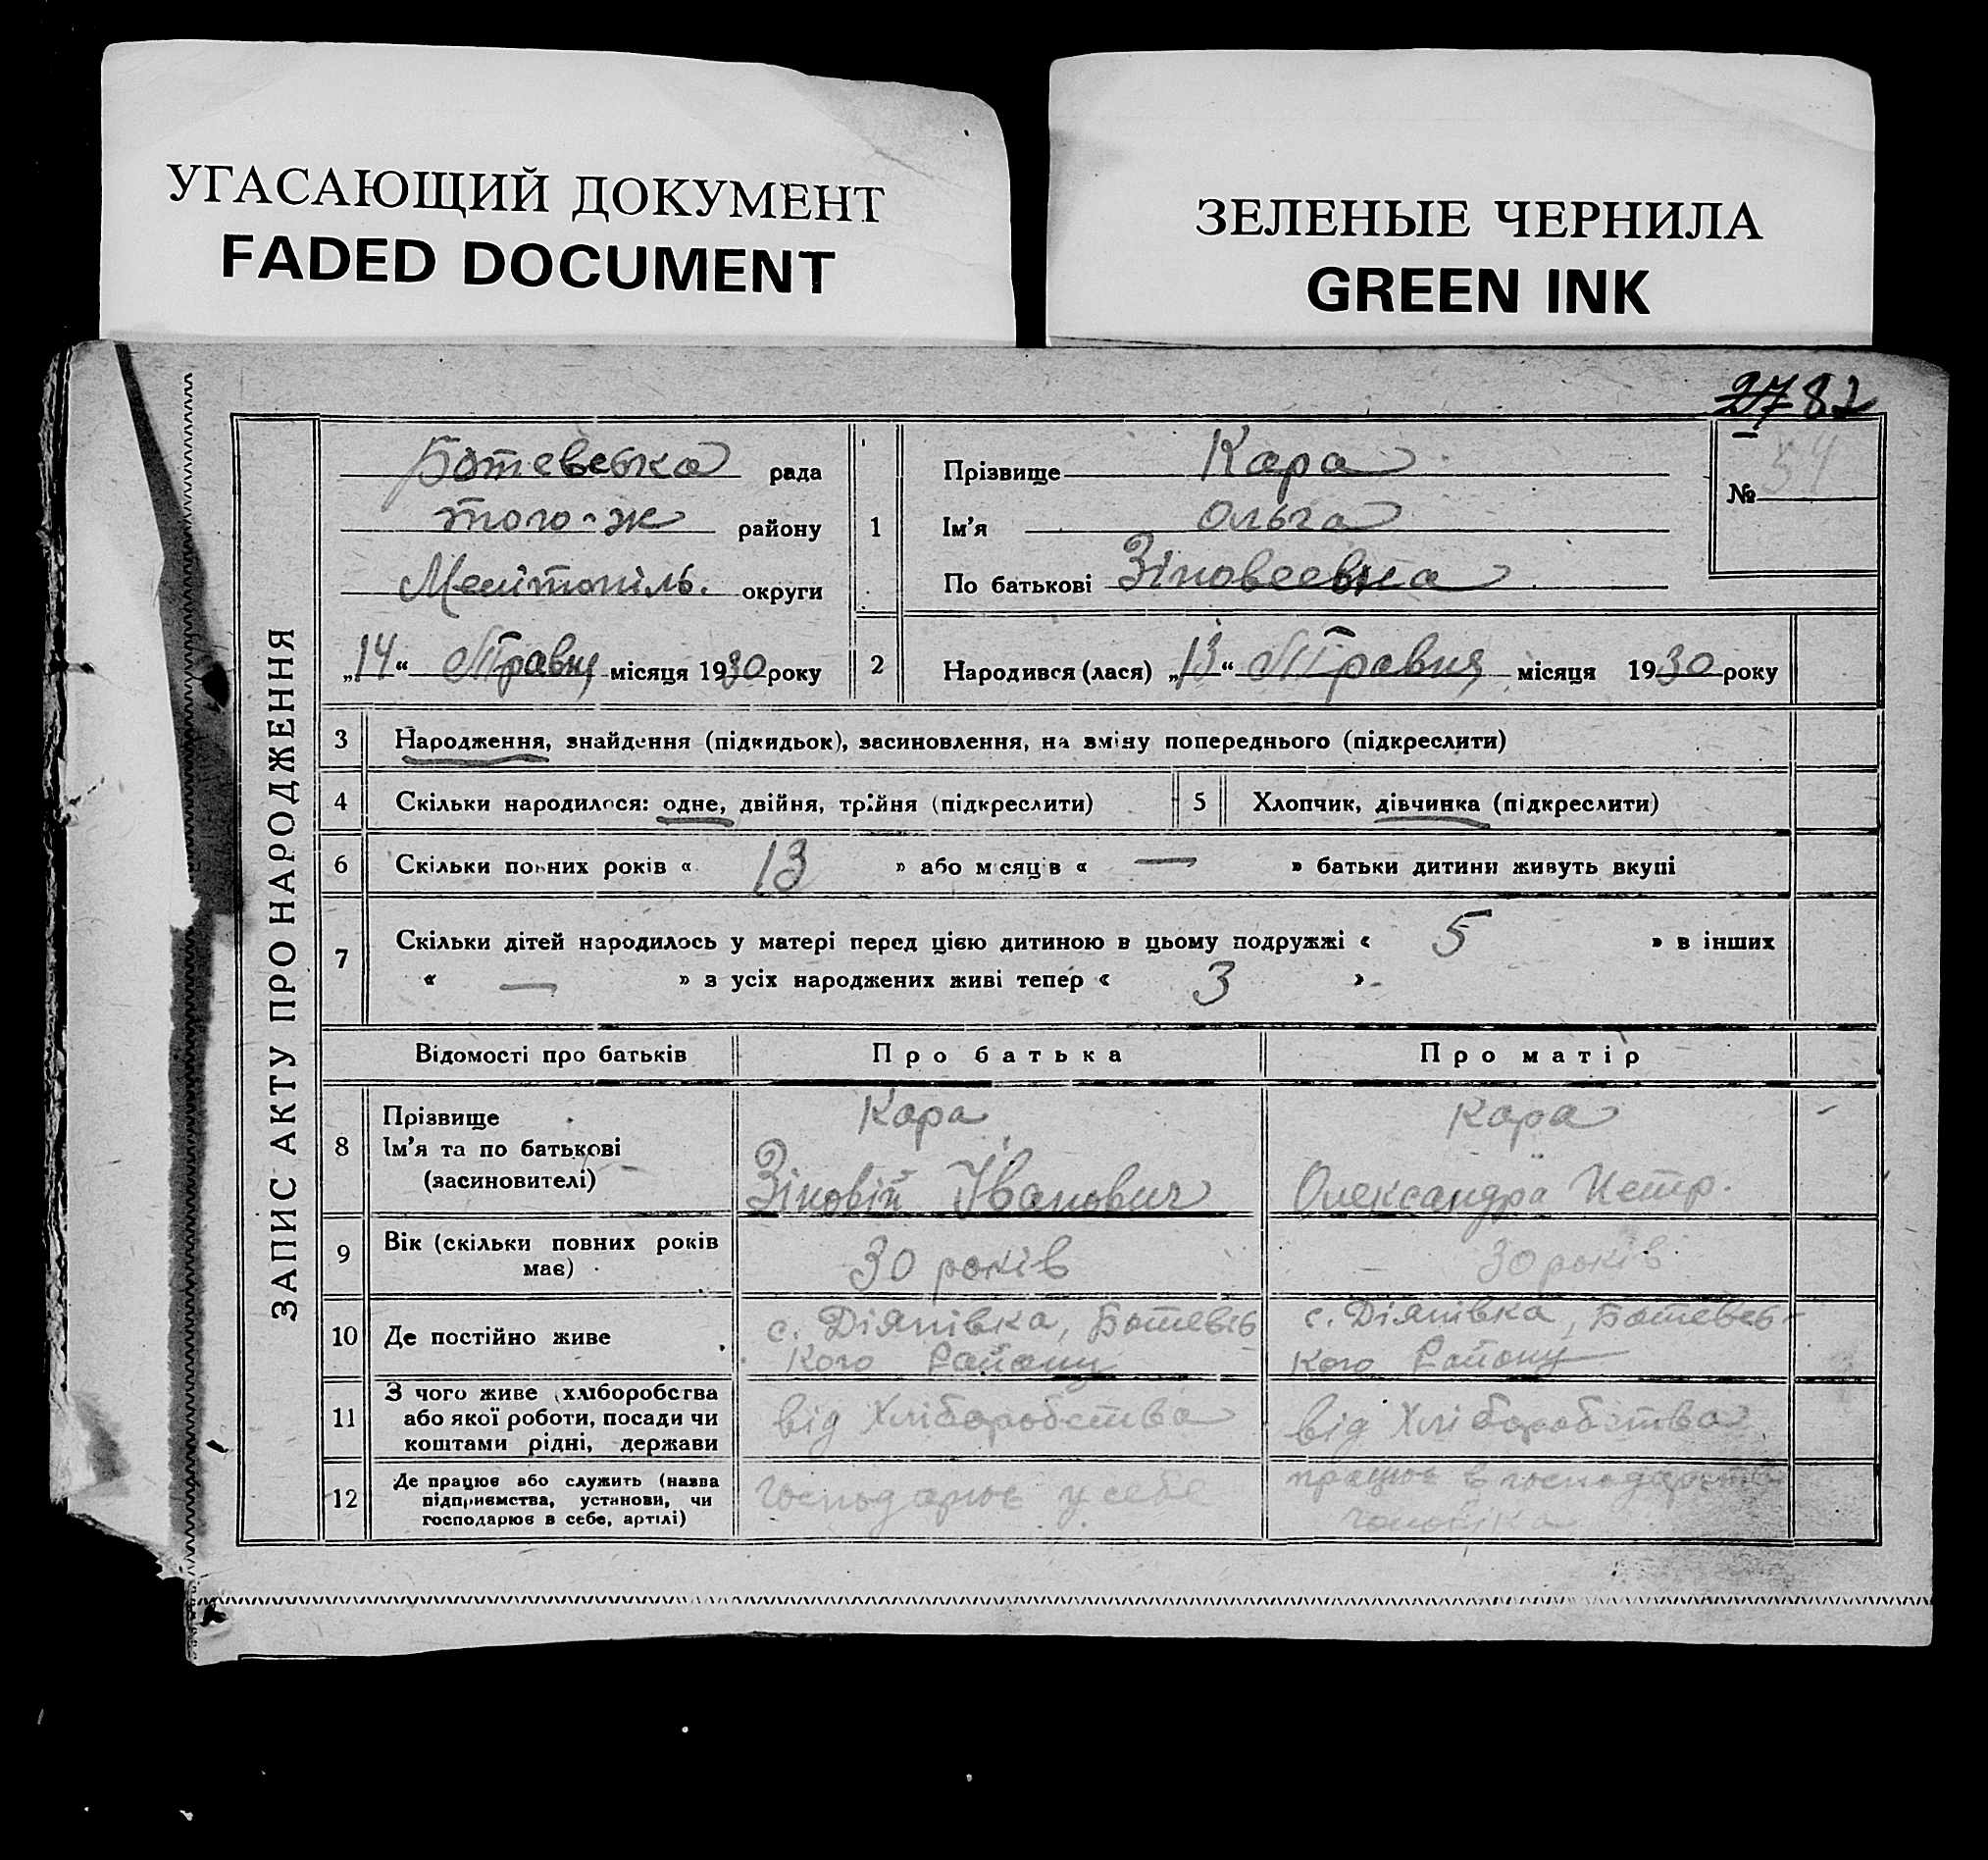 УГАСАЮЩИЙ ДОКУМЕНТ
FADED DOCUMENT
ЗЕЛЕНЫЕ ЧЕРНИЛА
GREEN INK
27 82
ЗАПИС АКТУ ПРО НАРОДЖЕННЯ
Ботевська рада
того-ж району
Мелітопіль. округи
„14“ Травня місяця 1930 року
1
Прізвище Кара
Ім'я Ольга
По батькові Зіновеевна
№ 54
2 Народився (лася) „13“ Травня місяця 1930 року
3 Народження, знайдення (підкидьок), засиновлення, на зміну попереднього (підкреслити)
4 Скільки народилося: одне, двійня, трійня (підкреслити) 5 Хлопчик, дівчинка (підкреслити)
6 Скільки повних років « 13 » або місяців « — » батьки дитини живуть вкупі
7 Скільки дітей народилось у матері перед цією дитиною в цьому подружжі « 5 » в інших
« — » з усіх народжених живі тепер « 3 »
Відомості про батьків Про батька Про матір
8 Прізвище
Ім'я та по батькові
(засиновителі)
Кара
Зіновій Іванович
Кара
Олександра Петр.
9 Вік (скільки повних років
має)
30 років
30 років
10 Де постійно живе
с. Діянівка, Ботевсь
кого Району
с. Діянівка, Ботевсь-
кого Району
11 З чого живе (хліборобства
або якої роботи, посади чи
коштами рідні, держави
від Хліборобства
від Хліборобства
12 Де працює або служить (назва
підприємства, установи, чи
господарює в себе, артілі)
господарює у себе
працює в господарстві
чоловіка